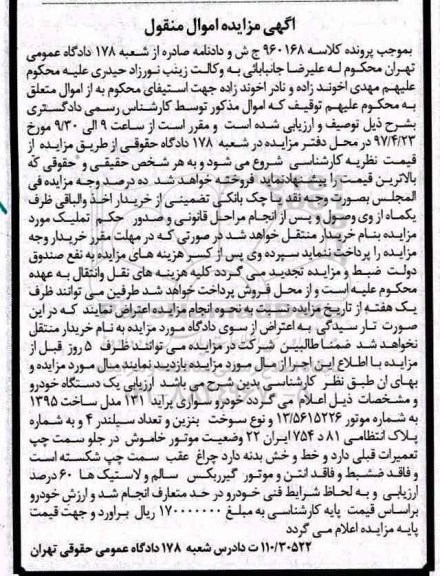 آگهی مزایده اموال منقول
بموجب پرونده کلاسه ۹۶۰۱۶۸ ج ش و دادنامه صادره از شعبه ۱۷۸ دادگاه عمومی
تهران محکوم له علیرضا جانبابائی به وکالت زینب نورزاد حیدری علیه محکوم
علیهم مهدی اخوند زاده و نادر اخوند زاده جهت استیفای محکوم به از اموال متعلق
به محکوم علیهم توقیف که اموال مذکور توسط کارشناس رسمی دادگستری
بشرح ذیل توصیف و ارزیابی شده است و مقرر است از ساعت ۹ الی ۹/۳۰ مورخ
۹۷/۴/۲۳ در محل دفتر مزایده در شعبه ۱۷۸ دادگاه حقوقی از طریق مزایده از
قیمت نظریه کارشناسی شروع می شود و به هر شخص حقیقی و حقوقی که
بالاترین قیمت را پیشنهاد نماید فروخته خواهد شد ده درصد وجه مزایده فی
المجلس بصورت وجه نقد یا چک بانکی تضمینی از خریدار اخذ والباقی ظرف
یکماه از وی وصول و پس از انجام مراحل قانونی و صدور حکم تملیک مورد
مزایده بنام خریدار منتقل خواهد شد در صورتی که در مهلت مقرر خریدار وجه
مزایده را پرداخت ننماید سپرده وی پس از کسر هزینه های مزایده به نفع صندوق
دولت ضبط و مزایده تجدید می گردد کلیه هزینه های نقل وانتقال به عهده
محکوم علیه است و از محل فروش پرداخت خواهد شد طرفین می توانند ظرف
یک هفته از تاریخ مزایده نسبت به نحوه انجام مزایده اعتراض نمایند که در این
صورت تا رسیدگی به اعتراض از سوی دادگاه مورد مزایده به نام خریدار منتقل
نخواهد شد ضمنا طالبین شرکت در مزایده می توانند ظرف ۵ روز قبل از
مزایده با اطلاع این اجرا از مال مورد مزایده بازدید نمایند مال مورد مزایده و
بهای ان طبق نظر کارشناسی بدین شرح می باشد ارزیابی یک دستگاه خودرو
و مشخصات ذیل اعلام می گردد خودرو سواری پراید ۱۳۱ مدل ساخت ۱۳۹۵
به شماره موتور ۱۳/۵۶۱۵۲۲۶ و نوع سوخت بنزین و تعداد سیلندر ۴ و به شماره
پلاک انتظامی ۸۱ د ۷۵۴ ایران ۲۲ وضعیت موتور خاموش در جلو سمت چپ
تعمیرات قبلی دارد و خط و خش بدنه دارد چراغ عقب سمت چپ شکسته است
و فاقد ضبط و فاقد انتن و موتور گیربکس سالم و لاستیک ها ۶۰ درصد
ارزیابی و به لحاظ شرایط فنی خودرو در حد متعارف انجام شد و ارزش خودرو
براساس قیمت پایه کارشناسی به مبلغ ۱۷۰۰۰۰۰۰۰ ریال براورد و جهت قیمت
پایه مزایده اعلام می گردد
۱۱۰/۳۰۵۲۲ ت دادرس شعبه ۱۷۸ دادگاه عمومی حقوقی تهران